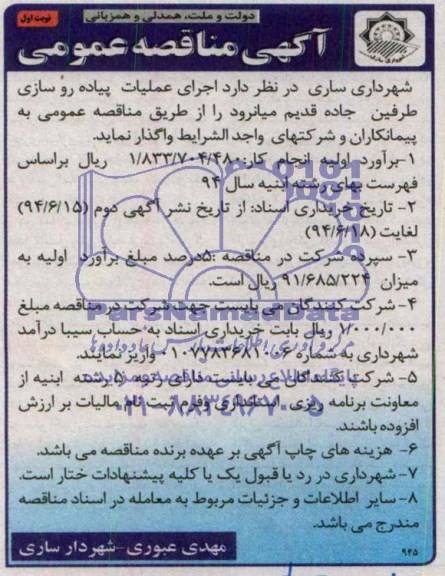 دولت و ملت، همدلی و همزبانی
نوبت اول
آگهی مناقصه عمومی
شهرداری ساری
شهرداری ساری در نظر دارد اجرای عملیات پیاده رو سازی
طرفین جاده قدیم میانرود را از طریق مناقصه عمومی به
پیمانکاران و شرکتهای واجد الشرایط واگذار نماید.
۱-برآورد اولیه انجام کار:۱/۸۳۳/۷۰۴/۴۸۰ ریال براساس
فهرست بهای رشته ابنیه سال ۹۴
۲- تاریخ خریداری اسناد: از تاریخ نشر آگهی دوم (۹۴/۶/۱۵)
لغایت (۹۴/۶/۱۸)
۳- سپرده شرکت در مناقصه :۵درصد مبلغ برآورد اولیه به
میزان ۹۱/۶۸۵/۲۲۴ ریال است.
۴- شرکت کنندگان می بایست جهت شرکت در مناقصه مبلغ
۱/۰۰۰/۰۰۰ ریال بابت خریداری اسناد به حساب سیبا درآمد
شهرداری به شماره ۰۱۰۷۷۸۳۶۸۱۰۰۶ واریز نمایند.
۵- شرکت کنندگان می بایست دارای رتبه ۵ رشته ابنیه از
معاونت برنامه ریزی استانداری وفرم ثبت نام مالیات بر ارزش
افزوده باشند.
۶- هزینه های چاپ آگهی بر عهده برنده مناقصه می باشد.
۷- شهرداری در رد یا قبول یک یا کلیه پیشنهادات ختار است.
۸- سایر اطلاعات و جزئیات مربوط به معامله در اسناد مناقصه
مندرج می باشد.
مهدی عبوری-شهردار ساری
۹۴۵
ParsNamadData
۰۲۱-۸۸۳۴۹۶۷۰-۵